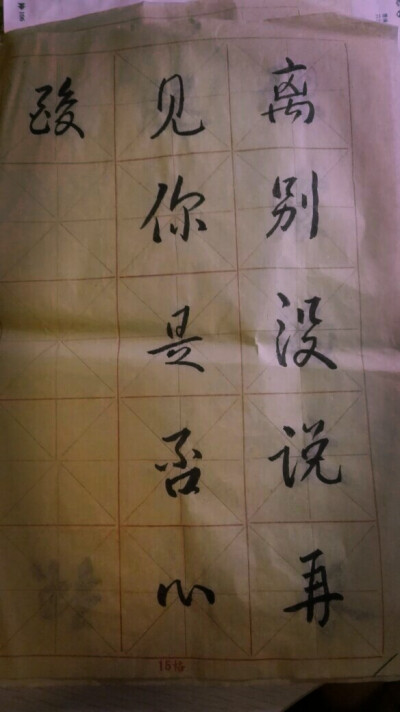 离别没说再
见你是否心
酸
15格